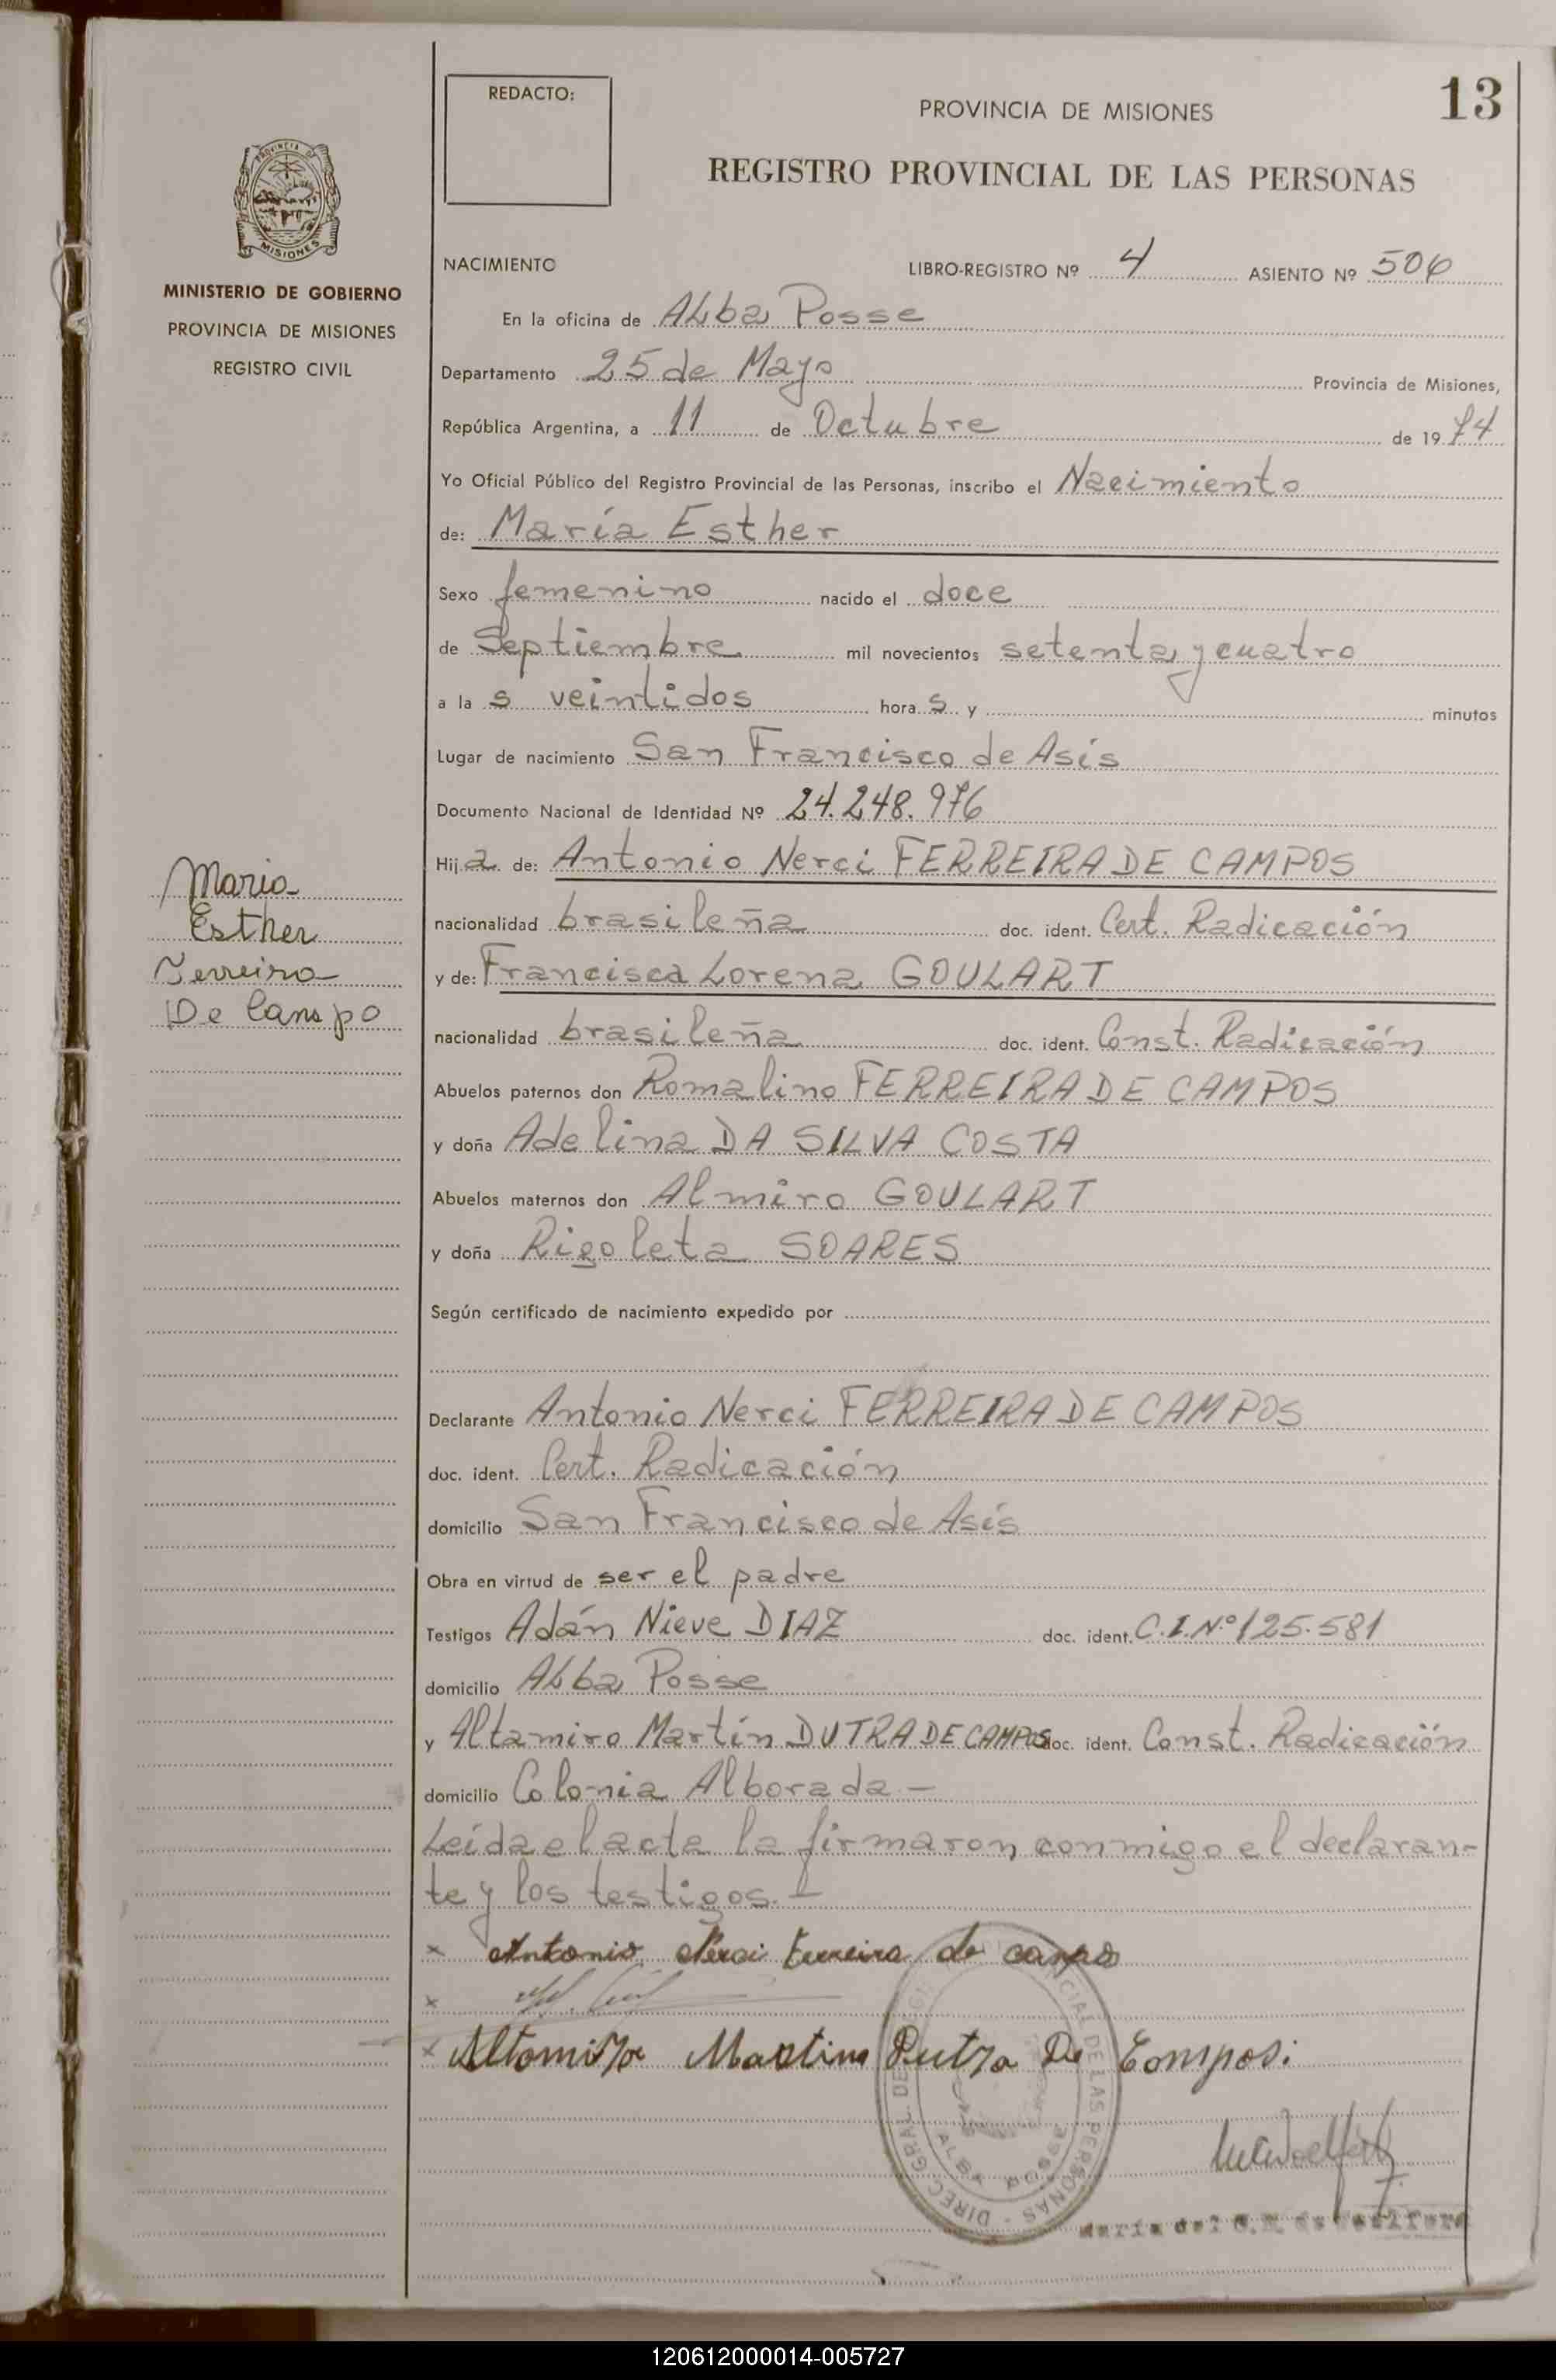 13
REDACTO:
PROVINCIA DE MISIONES
REGISTRO PROVINCIAL DE LAS PERSONAS
PROVINCIA DE
MISIONES
MINISTERIO DE GOBIERNO
PROVINCIA DE MISIONES
REGISTRO CIVIL
NACIMIENTO LIBRO-REGISTRO Nº 4 ASIENTO Nº 506
En la oficina de Alba Posse
Departamento 25 de Mayo Provincia de Misiones,
República Argentina, a 11 de Octubre de 1974
Yo Oficial Público del Registro Provincial de las Personas, inscribo el Nacimiento
de: María Esther
Sexo femenino nacido el doce
de Septiembre mil novecientos setenta y cuatro
a la s veintidos hora s y minutos
Lugar de nacimiento San Francisco de Asís
Documento Nacional de Identidad Nº 24.248.976
Hija de: Antonio Nerci FERREIRA DE CAMPOS
nacionalidad brasileña doc. ident. Cert. Radicación
y de: Francisca Lorena GOULART
nacionalidad brasileña doc. ident. Const. Radicación
Abuelos paternos don Romalino FERREIRA DE CAMPOS
y doña Adelina DA SILVA COSTA
Abuelos maternos don Almiro GOULART
y doña Rigoleta SOARES
Según certificado de nacimiento expedido por
Declarante Antonio Nerci FERREIRA DE CAMPOS
doc. ident. Cert. Radicación
domicilio San Francisco de Asís
Obra en virtud de ser el padre
Testigos Adán Nieve DIAZ doc. ident. C.I.Nº 125.581
domicilio Alba Posse
y Altamiro Martín DUTRA DE CAMPOS doc. ident. Const. Radicación
domicilio Colonia Alborada -
Leída el acta la firmaron conmigo el declaran-
te y los testigos.-
x Antonio Nerci Ferreira de campo
x
x Altomiro Martins Dutra De Composi
María
Esther
Ferreira
De Campo
DIREC. GRAL. DE DE LAS PERSONAS
ALBA POSSE
María del C. M. de
120612000014-005727